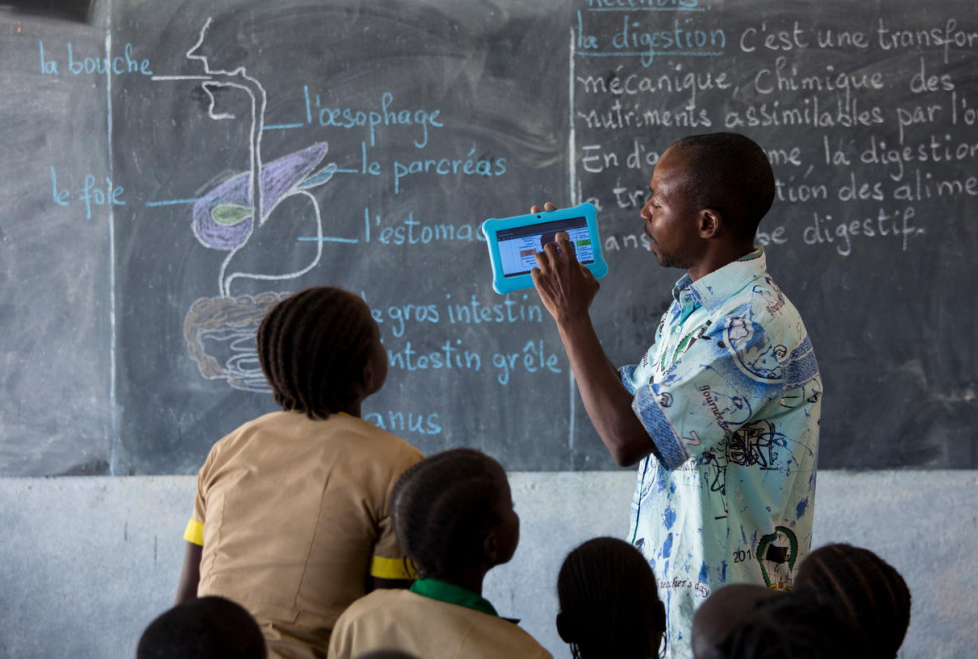 la bouche
l'œsophage
le parcréas
le foie
l'estomac
gros intestin
intestin grêle
anus
la digestion c'est une transfor
mécanique, Chimique des
nutriments assimilables par l'o
En d' me, la digestion
tion des alime
se digestif.
Journée
201
teacher's day